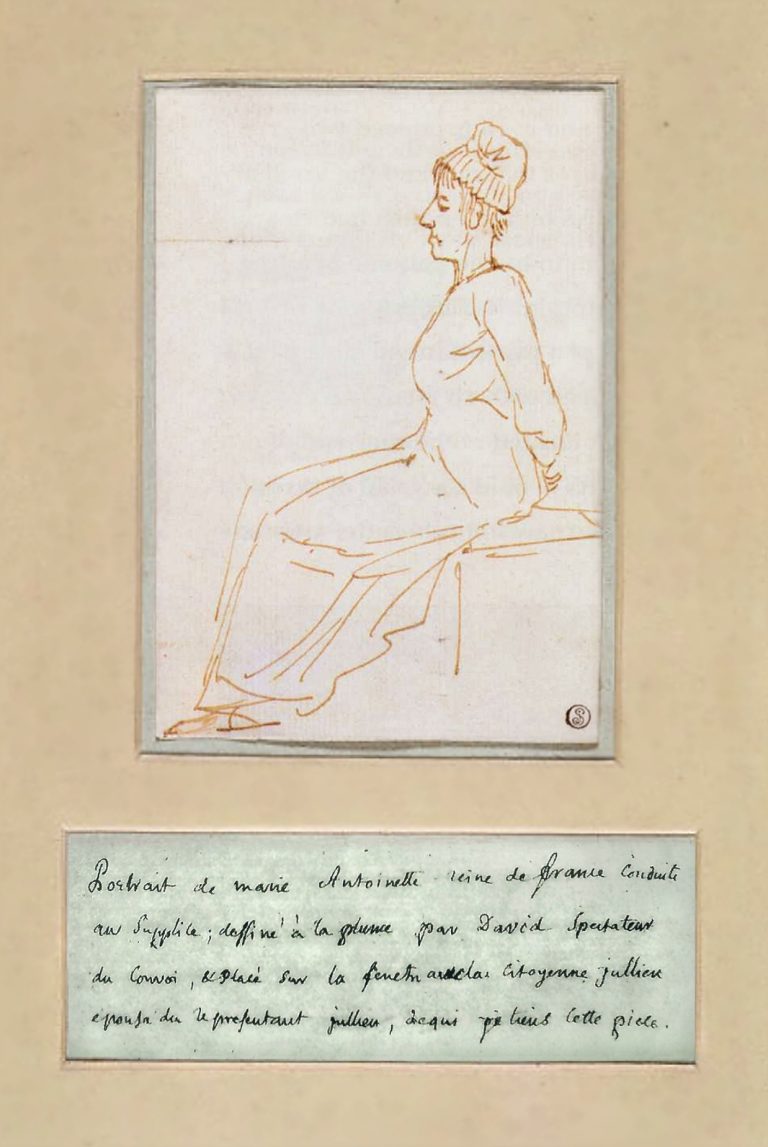 S
Portrait de marie Antoinette reine de france Conduite
au Supplice; dessiné à la plume par David Spectateur
du Convoi, & Placé sur la fenetre la Citoyenne jullien
epouse du representant jullien, de qui je tiens cette piece.